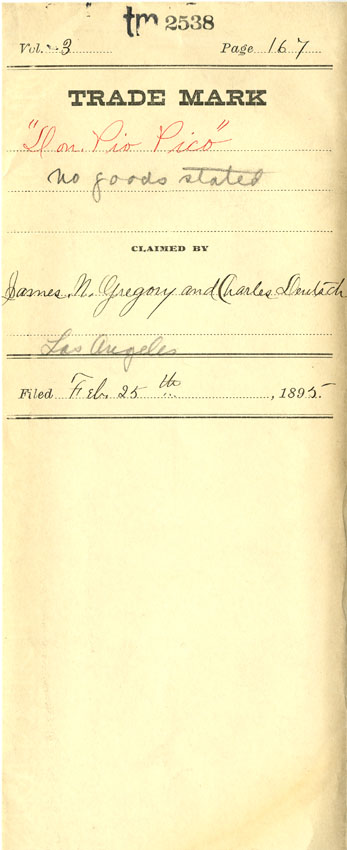 tm 2538
Vol. 3 Page 167
TRADE MARK
"Don Pio Pico"
No goods stated
CLAIMED BY
James N. Gregory and Charles Deutsch
Los Angeles
Filed Feb. 25th, 1895.